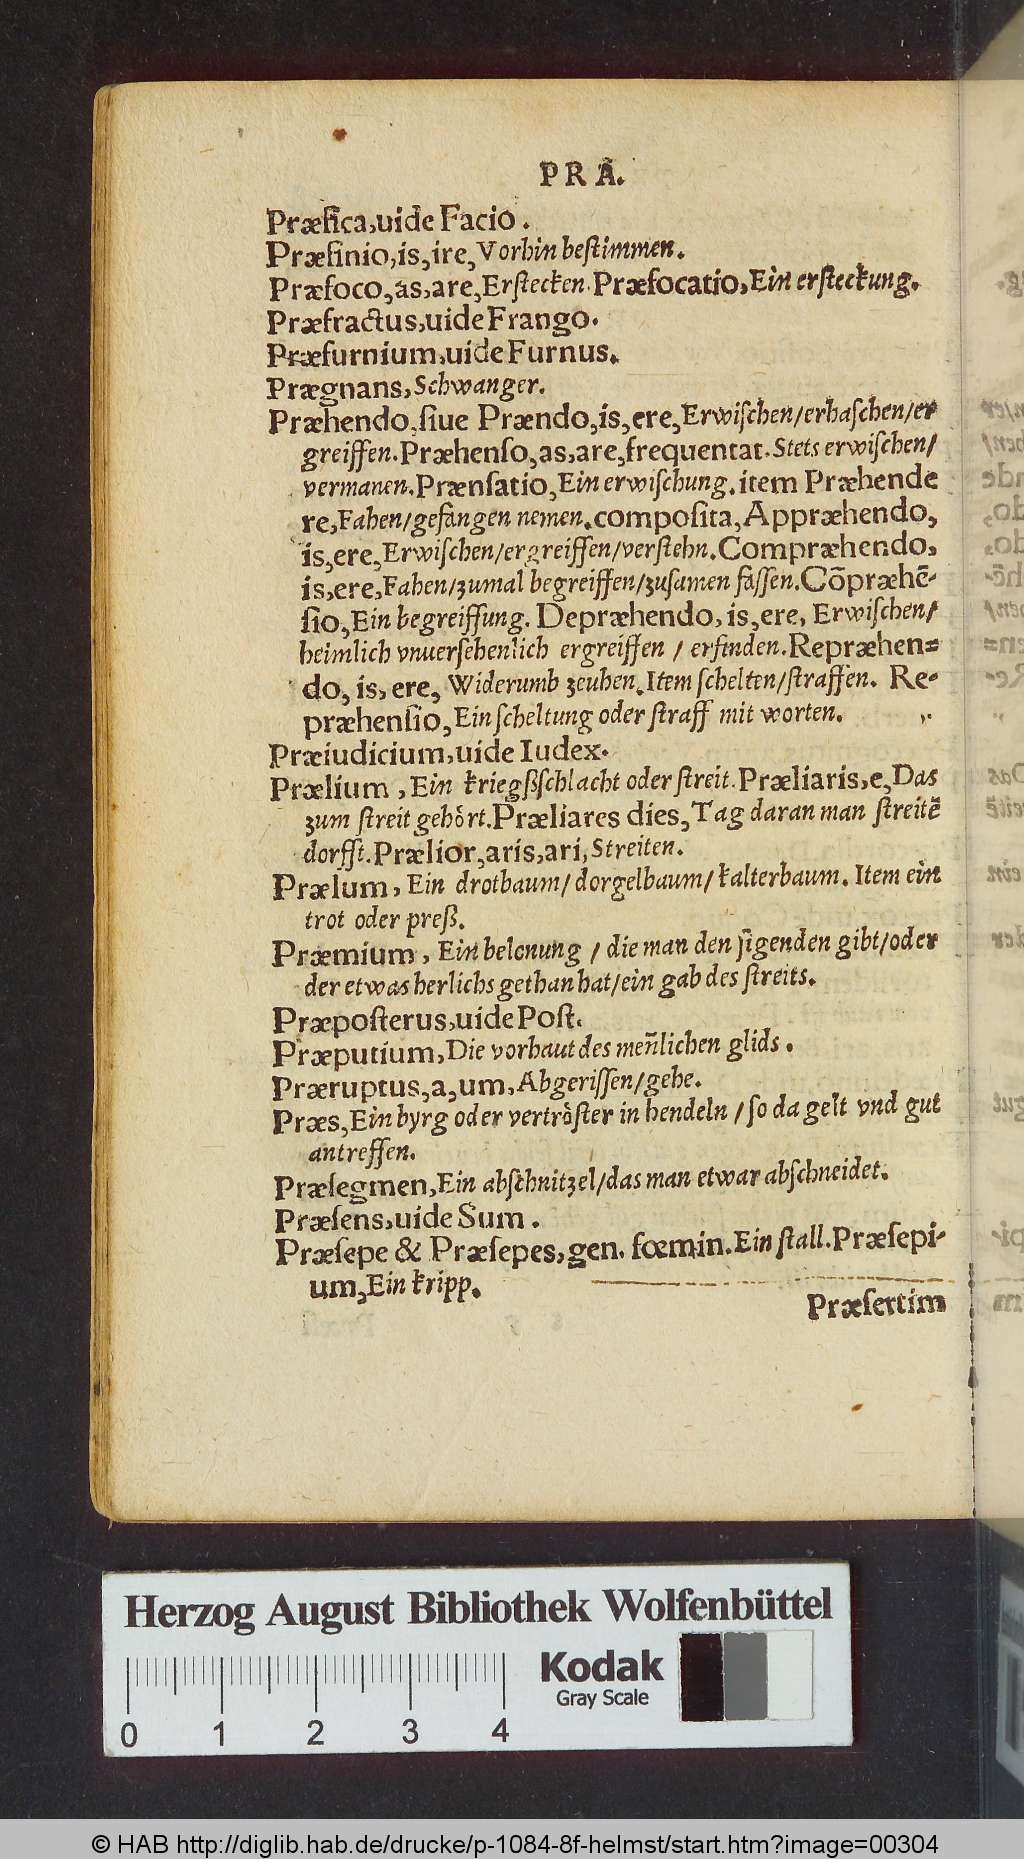 PRÆ.
Præfica,uide Facio.
Præfinio,is,ire,Vorhin beſtimmen.
Præfoco,as,are,Erſtecken.Præfocatio,Ein erſteckung.
Præfractus,uide Frango.
Præfurnium,uide Furnus.
Prægnans,Schwanger.
Præhendo,ſiue Prændo,is,ere,Erwiſchen/erhaſchen/er
greiffen.Præhenſo,as,are,frequentat.Stets erwiſchen/
vermanen.Prænſatio,Ein erwiſchung.item Præhende
re,Fahen/gefangen nemen.compoſita,Appræhendo,
is,ere,Erwiſchen/ergreiffen/verſtehn.Compræhendo,
is,ere,Fahen/zumal begreiffen/zuſamen faſſen.Cõpræhẽ-
ſio,Ein begreiffung. Depræhendo,is,ere, Erwiſchen/
heimlich vnuerſehenlich ergreiffen / erfinden.Repræhen=
do,is,ere, Widerumb zeuhen.Item ſchelten/ſtraffen. Re-
præhenſio,Ein ſcheltung oder ſtraff mit worten.
Præiudicium,uide Iudex.
Prælium , Ein kriegßſchlacht oder ſtreit.Præliaris,e,Das
zum ſtreit gehört.Præliares dies,Tag daran man ſtreitẽ
dorfft.Prælior,aris,ari,Streiten.
Prælum, Ein drotbaum/dorgelbaum/kalterbaum. Item ein
trot oder preß.
Præmium , Ein belonung / die man den ſigenden gibt/oder
der etwas herlichs gethan hat/ein gab des ſtreits.
Præpoſterus,uide Poſt.
Præputium,Die vorhaut des meñlichen glids .
Præruptus,a,um,Abgeriſſen/gehe.
Præs,Ein byrg oder vertröſter in hendeln / ſo da gelt vnd gut
antreffen.
Præſegmen,Ein abſchnitzel/das man etwar abſchneidet.
Præſens,uide Sum .
Præſepe & Præſepes,gen. fœmin.Ein ſtall.Præſepi-
um,Ein kripp.
Præſertim
Herzog August Bibliothek Wolfenbüttel
Kodak
Gray Scale
0 1 2 3 4
© HAB http://diglib.hab.de/drucke/p-1084-8f-helmst/start.htm?image=00304